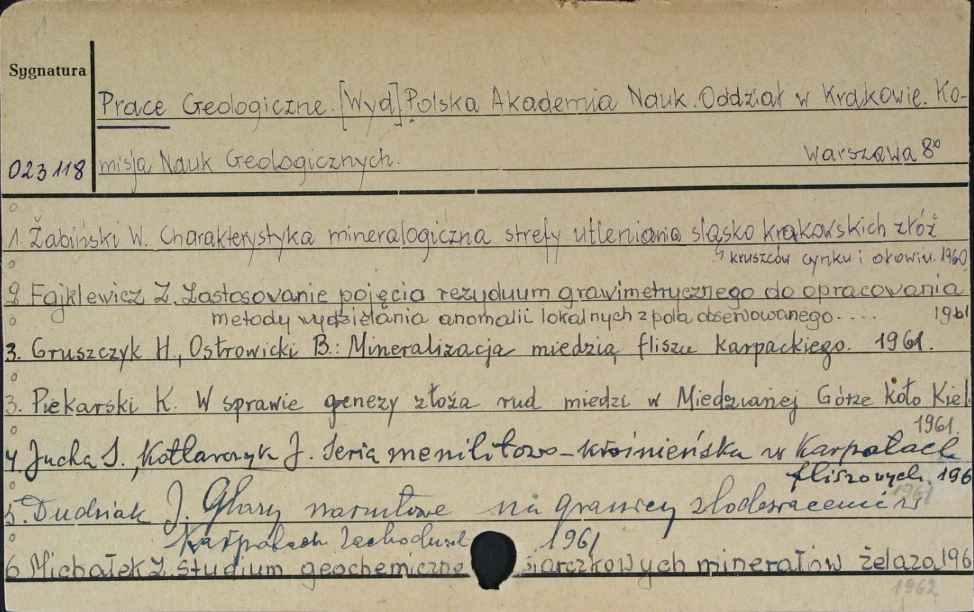 Sygnatura
Prace Geologiczne. [Wyd] Polska Akademia Nauk. Oddział w Krakowie. Ko-
023118 misja Nauk Geologicznych. Warszawa 8°
1. Żabiński W. Charakterystyka mineralogiczna strefy utleniania śląsko krakowskich złóż
kruszców cynku i ołowiu. 1960
2 Fajklewicz Z. Zastosowanie pojęcia rezyduum grawimetrycznego do opracowania
metody wydzielania anomalii lokalnych z pola obserwowanego.... 1961
3. Gruszczyk H., Ostrowicki B.: Mineralizacja miedzią fliszu karpackiego. 1961.
3. Piekarski K. W sprawie genezy złoża rud miedzi w Miedzianej Górze koło Kiel
1961.
4 Jucha S., Kotlarczyk J. Seria menilitowo-krośnieńska w Karpatach
fliszowych. 196
5. Dudziak J. Głazy narzutowe na granicy zlodowacenia w
1961
Karpatach Zachodn 1961
6 Michałek Z. Studium geochemiczne siarczkowych minerałów żelaza 196
1962